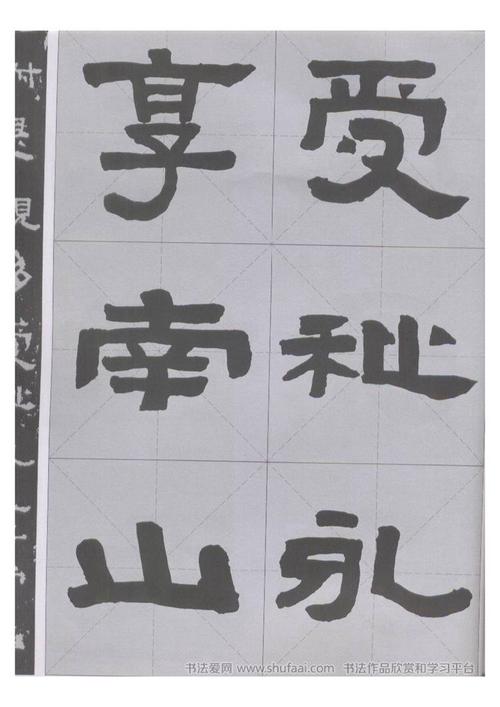 受祉永
享南山
书法爱网 www.shufaai.com 书法作品欣赏和学习平台